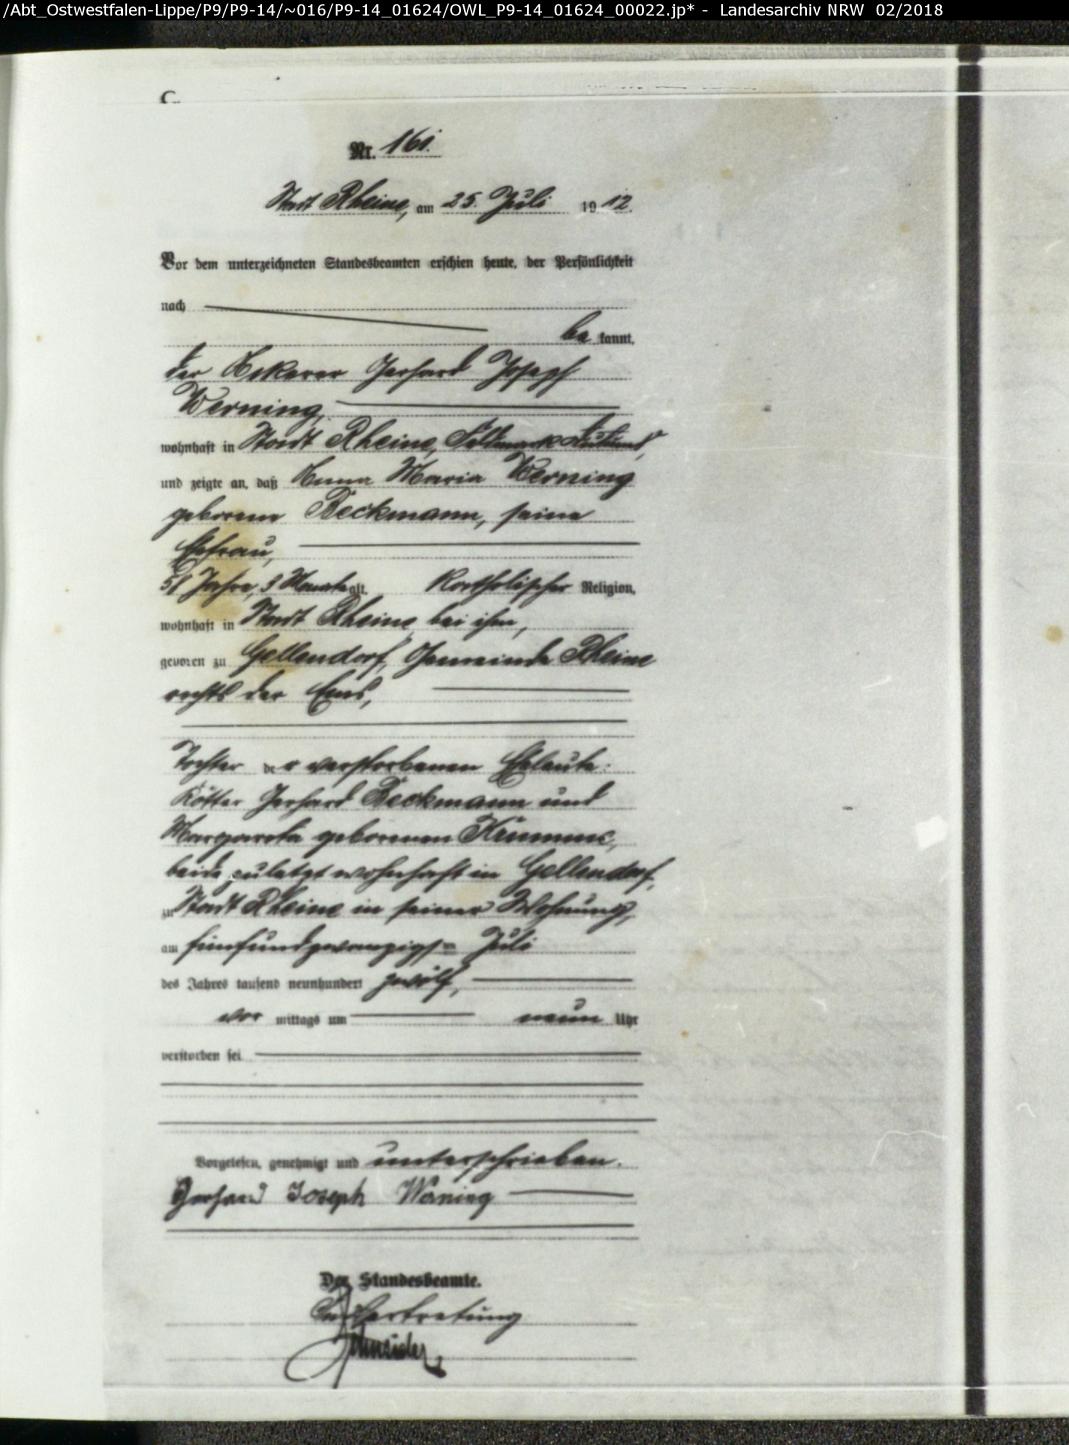 /Abt_Ostwestfalen-Lippe/P9/P9-14/~016/P9-14_01624/OWL_P9-14_01624_00022.jp* - Landesarchiv NRW 02/2018
C.
Nr. 161.
Stadt Rheine, am 25. Juli 1912.
Vor dem unterzeichneten Standesbeamten erschien heute, der Persönlichkeit
nach
be kannt,
der Ackerer Gerhard Joseph
Werning,
wohnhaft in Stadt Rheine, Feldmark
und zeigte an, daß Anna Maria Werning
geborene Beckmann, seine
Ehefrau,
51 Jahre, 3 Monate alt, katholischer Religion,
wohnhaft in Stadt Rheine bei ihm,
geboren zu Gellendorf, Gemeinde Rheine
rechts der Ems,
Tochter der verstorbenen Eheleute:
Kötter Gerhard Beckmann und
Margareta geborenen
beide zuletzt wohnhaft in Gellendorf,
zu Stadt Rheine in seiner Wohnung,
am fünfundzwanzigsten Juli
des Jahres tausend neunhundert zwölf,
vor mittags um neun Uhr
verstorben sei
Vorgelesen, genehmigt und unterschrieben.
Gerhard Joseph Werning
Der Standesbeamte.
In Vertretung
Schneider